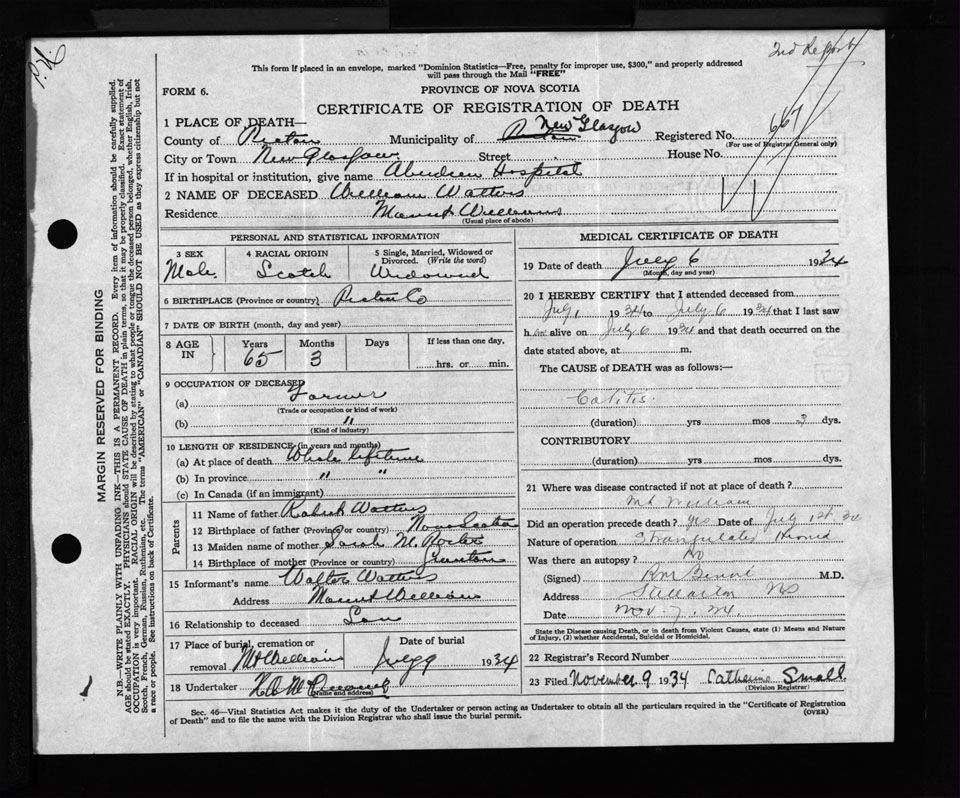 2nd Report
This form if placed in an envelope, marked "Dominion Statistics—Free, penalty for improper use, $300," and properly addressed
will pass through the Mail "FREE"
FORM 6.
PROVINCE OF NOVA SCOTIA
CERTIFICATE OF REGISTRATION OF DEATH
1 PLACE OF DEATH—
County of Pictou Municipality of New Glasgow Registered No. 667
(For use of Registrar General only)
City or Town New Glasgow Street House No.
If in hospital or institution, give name Aberdeen Hospital
2 NAME OF DECEASED William Watters
Residence Mount William
(Usual place of abode)
PERSONAL AND STATISTICAL INFORMATION
3 SEX Male
4 RACIAL ORIGIN Scotch
5 Single, Married, Widowed or Divorced. (Write the word) Widowed
6 BIRTHPLACE (Province or country) Pictou Co
7 DATE OF BIRTH (month, day and year)
8 AGE IN Years 65 Months 3 Days If less than one day, hrs. or min.
9 OCCUPATION OF DECEASED
(a) Farmer
(Trade or occupation or kind of work)
(b) "
(Kind of industry)
10 LENGTH OF RESIDENCE (in years and months)
(a) At place of death Whole lifetime
(b) In province " "
(c) In Canada (if an immigrant)
Parents
11 Name of father Robert Watters
12 Birthplace of father (Province or country) Nova Scotia
13 Maiden name of mother Sarah M.
14 Birthplace of mother (Province or country)
15 Informant's name Walter Watters
Address Mount William
16 Relationship to deceased Son
17 Place of burial, cremation or removal Mt William
Date of burial July 9 1934
18 Undertaker
(Name and address)
MEDICAL CERTIFICATE OF DEATH
19 Date of death July 6 1934
(Month, day and year)
20 I HEREBY CERTIFY that I attended deceased from
July 1 1934 to July 6 1934 that I last saw
h im alive on July 6 1934 and that death occurred on the
date stated above, at m.
The CAUSE of DEATH was as follows:—
Colitis
(duration) yrs mos 3 dys.
CONTRIBUTORY
(duration) yrs mos dys.
21 Where was disease contracted if not at place of death?
Mt William
Did an operation precede death? yes Date of July 1st 34
Nature of operation Strangulated Hernia
Was there an autopsy? No
(Signed) M.D.
Address Stellarton NS
Date Nov. 7. 34
State the Disease causing Death, or in death from Violent Causes, state (1) Means and Nature
of Injury, (2) whether Accidental, Suicidal or Homicidal.
22 Registrar's Record Number
23 Filed November 9 1934 Catherine Small
(Division Registrar)
Sec. 46—Vital Statistics Act makes it the duty of the Undertaker or person acting as Undertaker to obtain all the particulars required in the "Certificate of Registration
of Death" and to file the same with the Division Registrar who shall issue the burial permit.
(OVER)
MARGIN RESERVED FOR BINDING
N.B.—WRITE PLAINLY WITH UNFADING INK—THIS IS A PERMANENT RECORD. Every item of information should be carefully supplied.
AGE should be stated EXACTLY. PHYSICIANS should STATE CAUSE OF DEATH in plain terms, so that it may be properly classified. Exact statement of
OCCUPATION is very important. RACIAL ORIGIN will be described by stating to what people or tongue the deceased person belonged, whether English, Irish,
Scotch, French, German, Russian, Ruthenian, etc. The terms "AMERICAN" or "CANADIAN" SHOULD NOT BE USED as they express citizenship but not
a race or people. See instructions on back of Certificate.